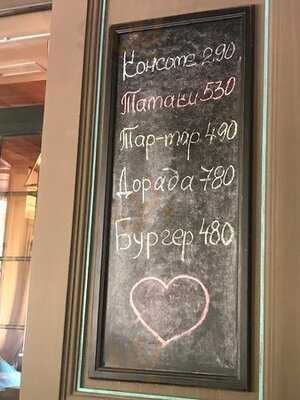 Консоте 290
Татаки 530
Тар-тар 490
Дорада 780
Бургер 480